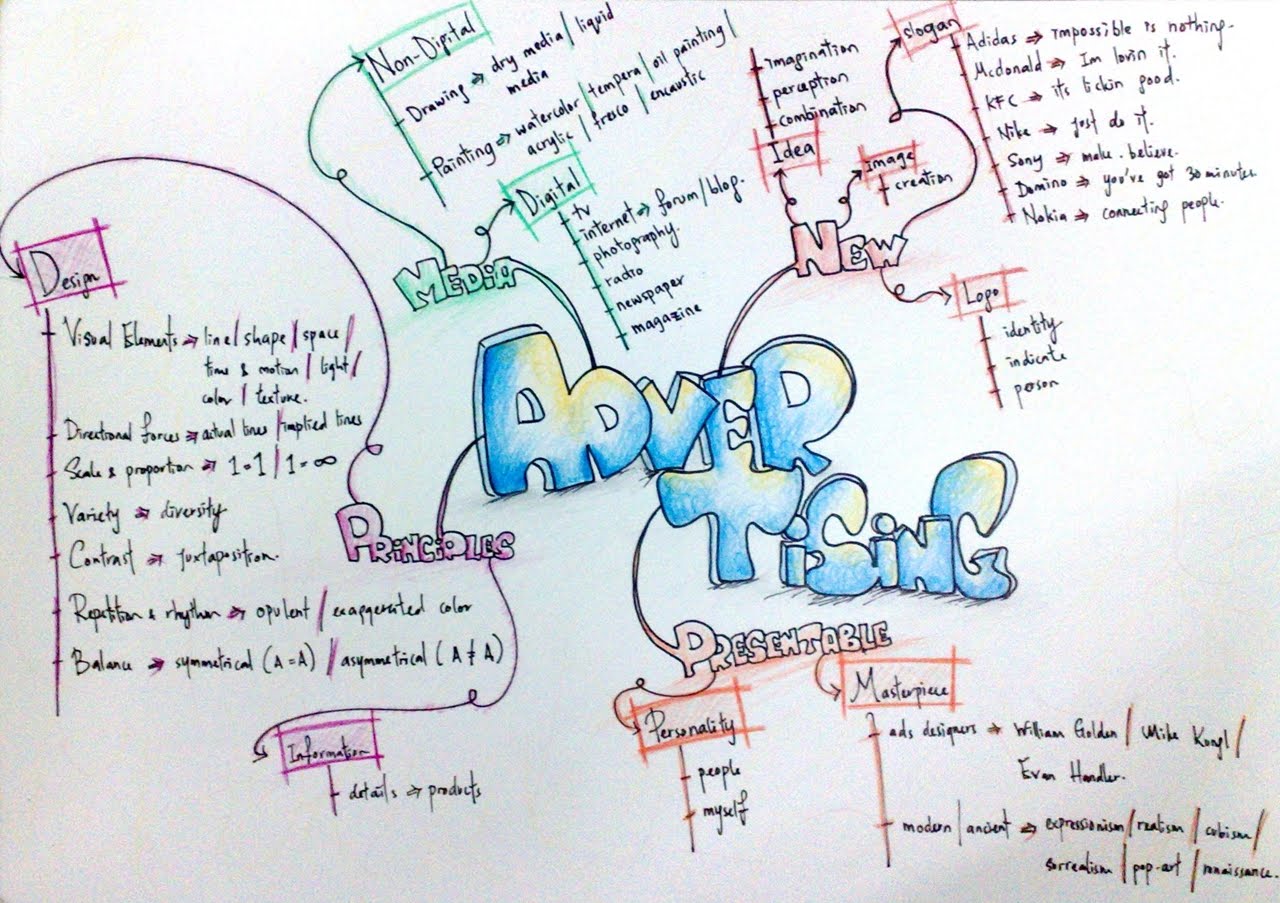 ADVERTISING
MEDIA
Non-Digital
Drawing ⇒ dry media / liquid
media
Painting ⇒ watercolor / tempera / oil painting /
acrylic / fresco / encaustic
Digital
tv
internet ⇒ forum / blog.
photography.
radio
newspaper
magazine
NEW
Idea
imagination
perception
combination
Image
creation
slogan
Adidas ⇒ impossible is nothing.
Mcdonald ⇒ Im lovin it.
KFC ⇒ its lickin good.
Nike ⇒ just do it.
Sony ⇒ make. believe.
Domino ⇒ you've got 30 minutes
Nokia ⇒ connecting people.
Logo
identity
indicate
person
PRINCIPLES
Design
Visual Elements ⇒ line / shape / space /
time & motion / light /
color / texture.
Directional forces ⇒ actual lines / implied lines
Scale & proportion ⇒ 1=1 / 1=∞
Variety ⇒ diversity
Contrast ⇒ juxtaposition.
Repetition & rhythm ⇒ opulent / exaggerated color
Balance ⇒ symmetrical (A=A) / asymmetrical (A ≠ A)
Information
details ⇒ products
PRESENTABLE
Personality
people
myself
Masterpiece
ads designers ⇒ William Golden / Mike /
Evan Handler.
modern / ancient ⇒ expressionism / realism / cubism /
surrealism / pop-art / renaissance.